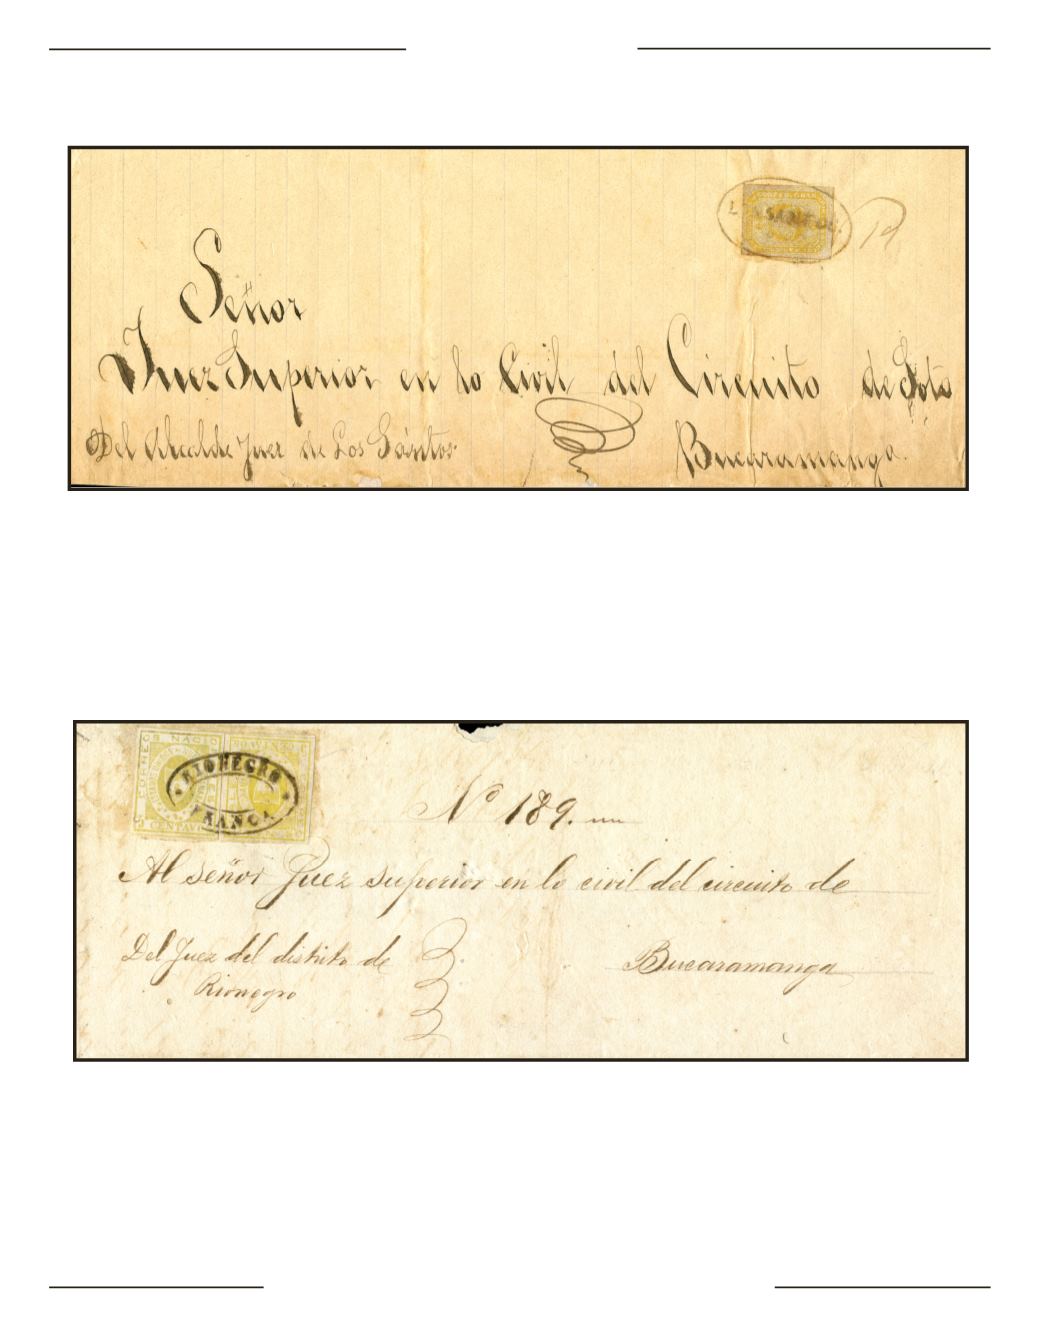 LOS SANTOS.
Señor
Juez Superior en lo Civil del Circuito de Soto
Del Alcalde Juez de Los Santos
Bucaramanga.
CORREOS NACIO
5 CENTAV
RIONEGRO
FRANCA
No 189.
Al señor Juez superior en lo civil del circuito de
Del Juez del distrito de
Rionegro
Bucaramanga